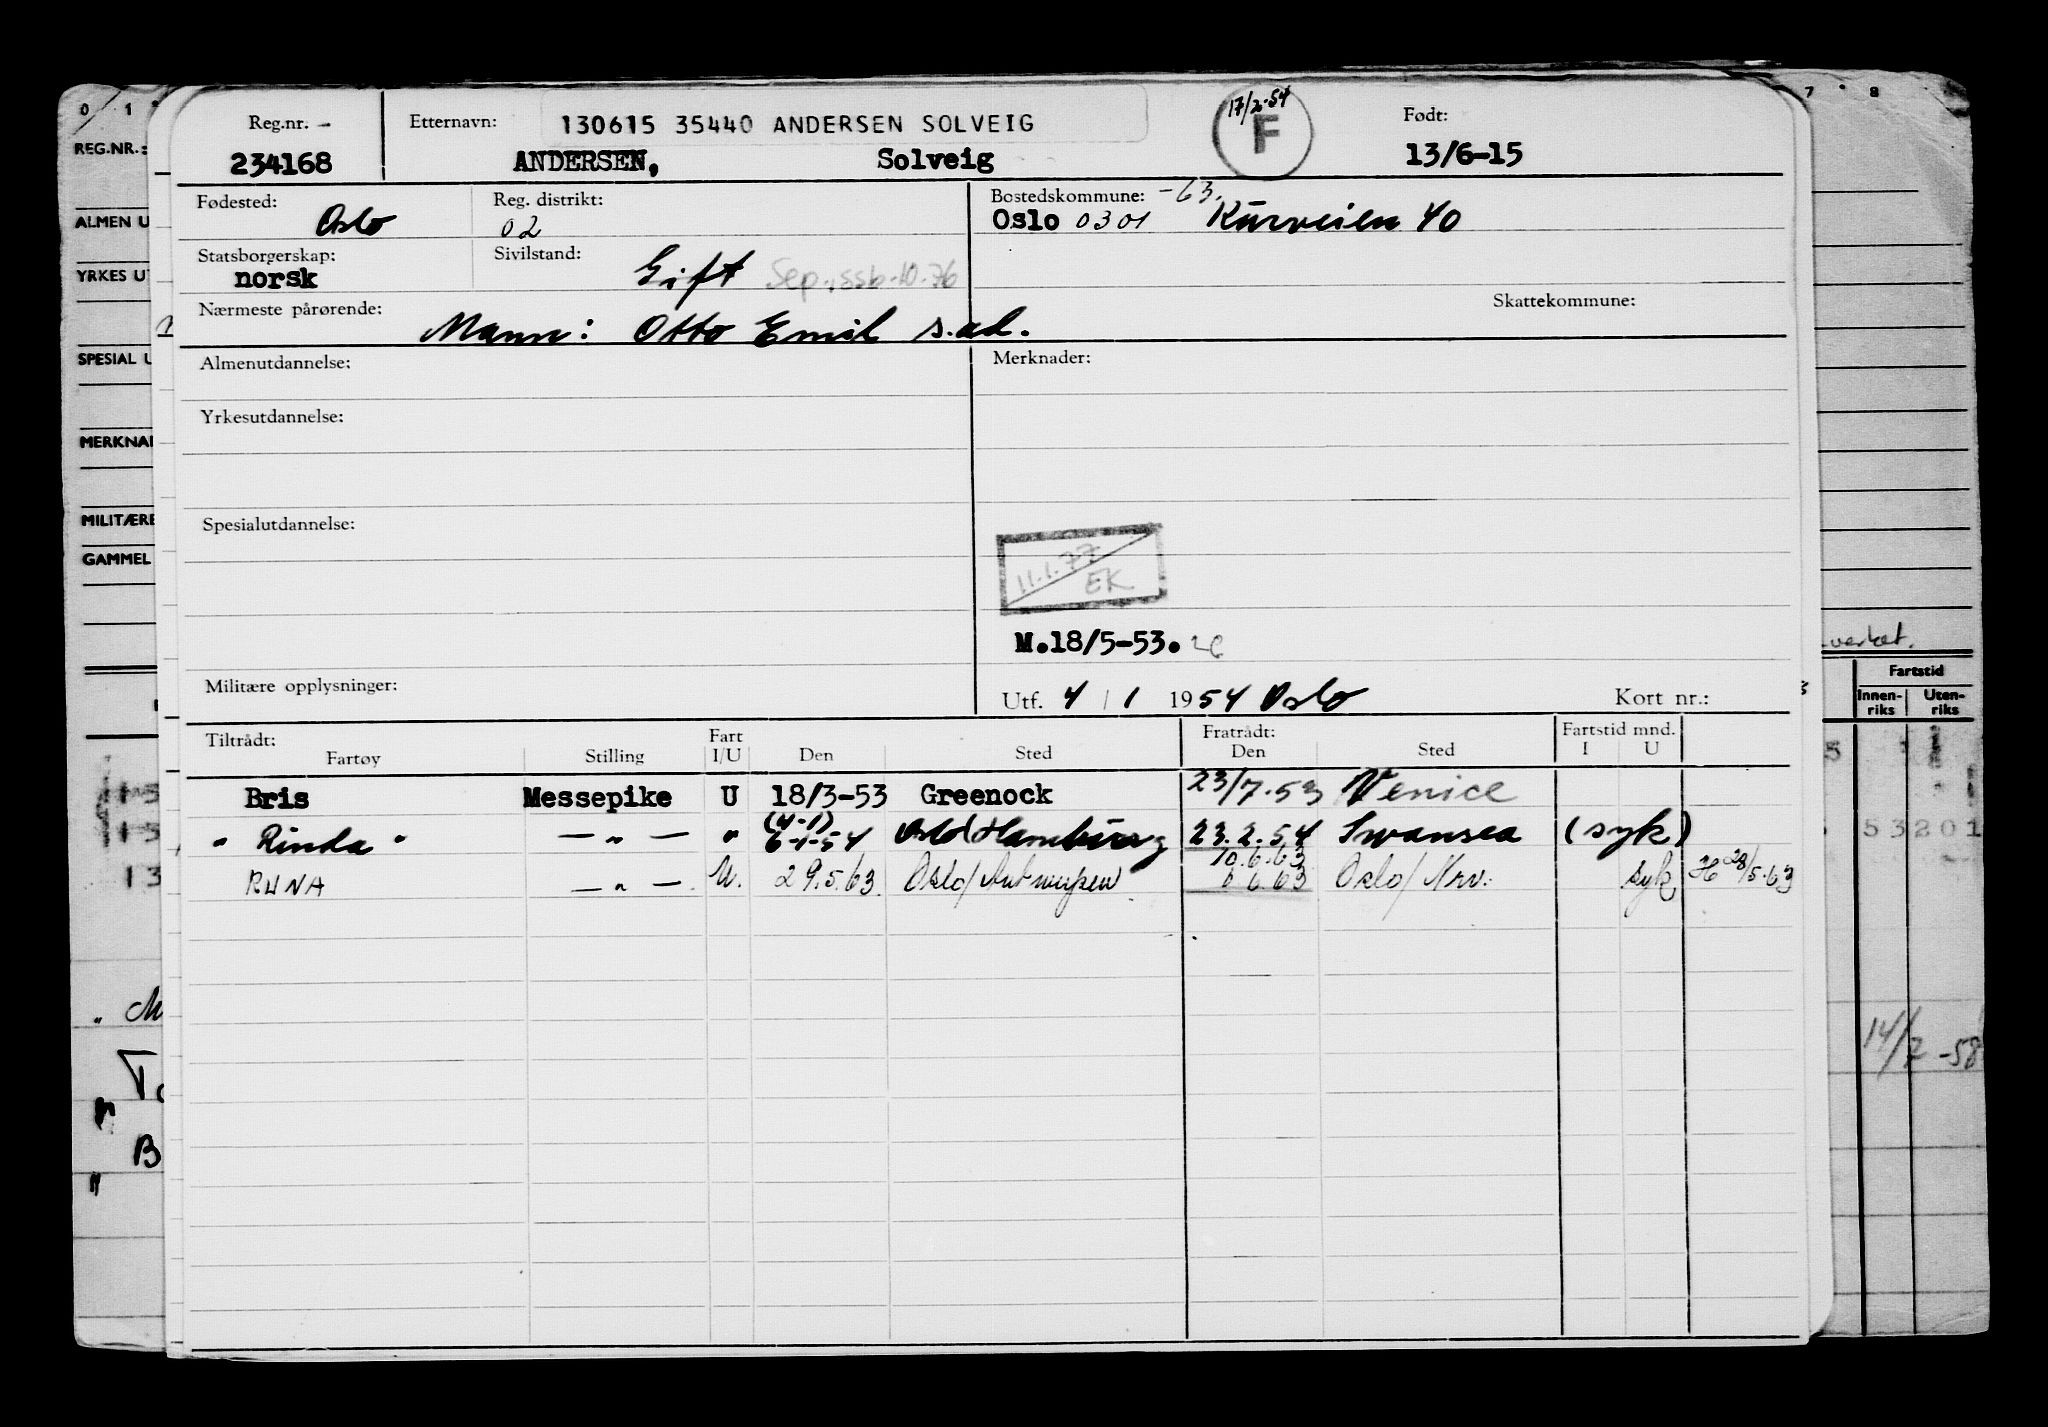 Reg.nr. – Etternavn: 130615 35440 ANDERSEN SOLVEIG 17/2-54 F Født:
234168 ANDERSEN, Solveig 13/6-15
Fødested: Oslo Reg. distrikt: 02 Bostedskommune: -63.
Oslo 0301 Kurveien 40
Statsborgerskap: norsk Sivilstand: Gift Sep., ssb-10-76
Nærmeste pårørende: Mann: Otto Emil s.ad. Skattekommune:
Almenutdannelse: Merknader:
Yrkesutdannelse:
Spesialutdannelse:
11.1.77
EK
M.18/5-53.
Militære opplysninger: Utf. 4/1 1954 Oslo Kort nr.:
Tiltrådt: Fart Fratrådt: Fartstid mnd.
Fartøy Stilling I/U Den Sted Den Sted I U
Bris Messepike U 18/3-53 Greenock 23/7.53 Venice
(4-1)
" Rinda " — " — " 6-1-54 Oslo/Hamburg 23.2.54 Swansea (syk)
10.6.63
RUNA — " — U. 29.5.63. Oslo/Antwerpen 6.6.63 Oslo/Nrv. syk H 28/5.63
0 1
REG.NR.:
ALMEN U
YRKES UT
SPESIAL U
MERKNA
MILITÆRE
GAMMEL
7 8
Fartstid
Innen-
riks
Uten-
riks
53 201
14/2-58